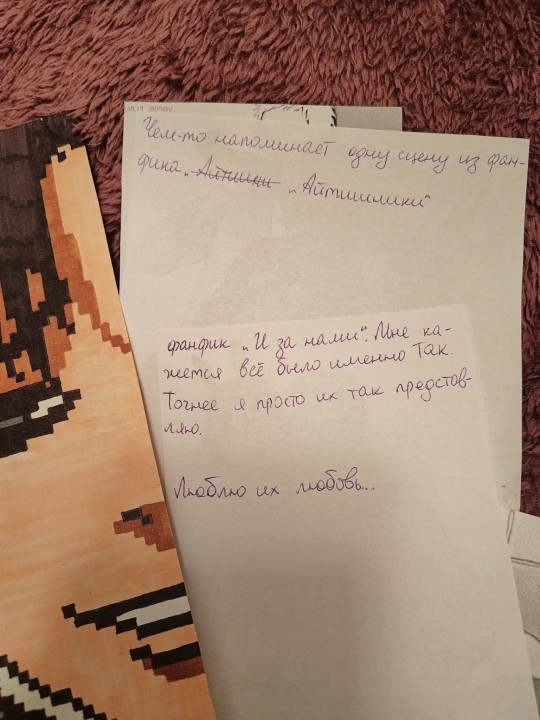 Чем-то напоминает одну сцену из фан-
фика „Айтишни „Айтишники"
фанфик „И за нами". Мне ка-
жется всё было именно так.
Точнее я просто их так представ-
ляю.
Люблю их любовь...